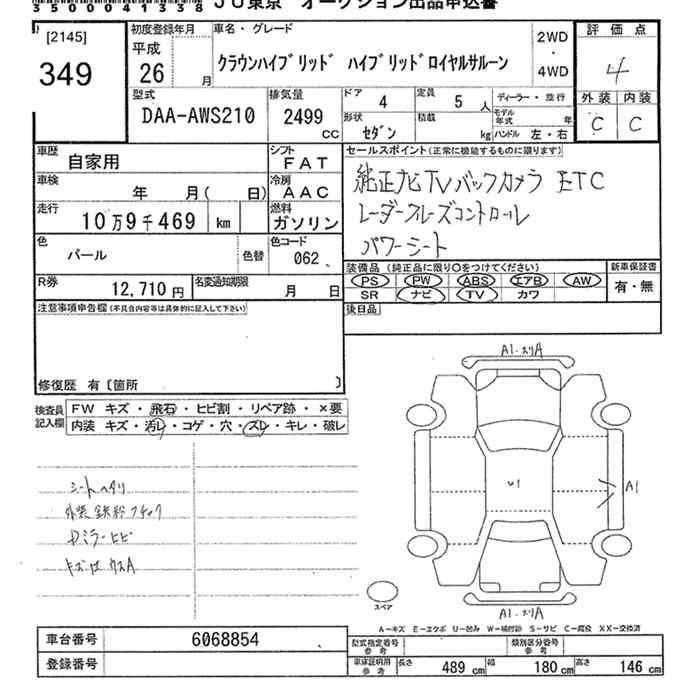 35000041338 JU東京 オークション出品申込書
[2145]
349
初度登録年月
平成
26 月
車名・グレード
クラウンハイブリッド ハイブリッドロイヤルサルーン
2WD
・
4WD
評価点
4
外装 内装
C C
型式
DAA-AWS210
排気量
2499 CC
ドア 4
定員 5 人
ディーラー・並行
モデル年式 年
形状 セダン
積載 kg
ハンドル 左・右
車歴 自家用
シフト FAT
車検 年 月( 日)
冷房 AAC
走行 10万9千469 km
燃料 ガソリン
色 パール
色替
色コード 062
R券 12,710円
名変通知期限 月 日
セールスポイント(正常に機能するものに限ります)
純正ナビTVバックカメラ ETC
レーダークルーズコントロール
パワーシート
装備品 (純正品に限り○をつけてください)
PS PW ABS エアB AW
SR ナビ TV カワ
新車保証書
有・無
後日品
注意事項申告欄(不具合内容等は具体的に記入して下さい)
修復歴 有〔箇所 〕
検査員記入欄
FW キズ・飛石・ヒビ割・リペア跡・×要
内装 キズ・汚レ・コゲ・穴・スレ・キレ・破レ
シートヘタリ
外装鉄粉フチャク
Dミラーヒビ
キズ
A1
A1
A1
U1
スペア
A-キズ E-エクボ U-凹み W-補修跡 S-サビ C-腐食 XX-交換済
車台番号 6068854
登録番号
型式指定番号 参考
類別区分番号 参考
車庫証明用 参考
長さ 489 cm 幅 180 cm 高さ 146 cm